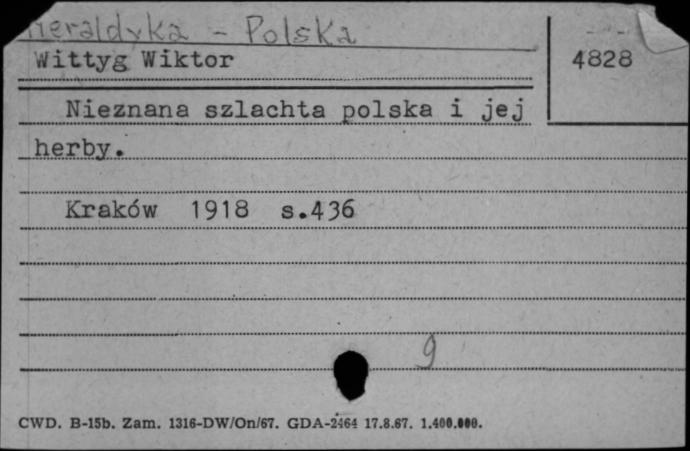 Heraldyka - Polska
Wittyg Wiktor
4828
Nieznana szlachta polska i jej
herby.
Kraków 1918 s.436
9
CWD. B-15b. Zam. 1316-DW/On/67. GDA-2464 17.8.67. 1.400.000.